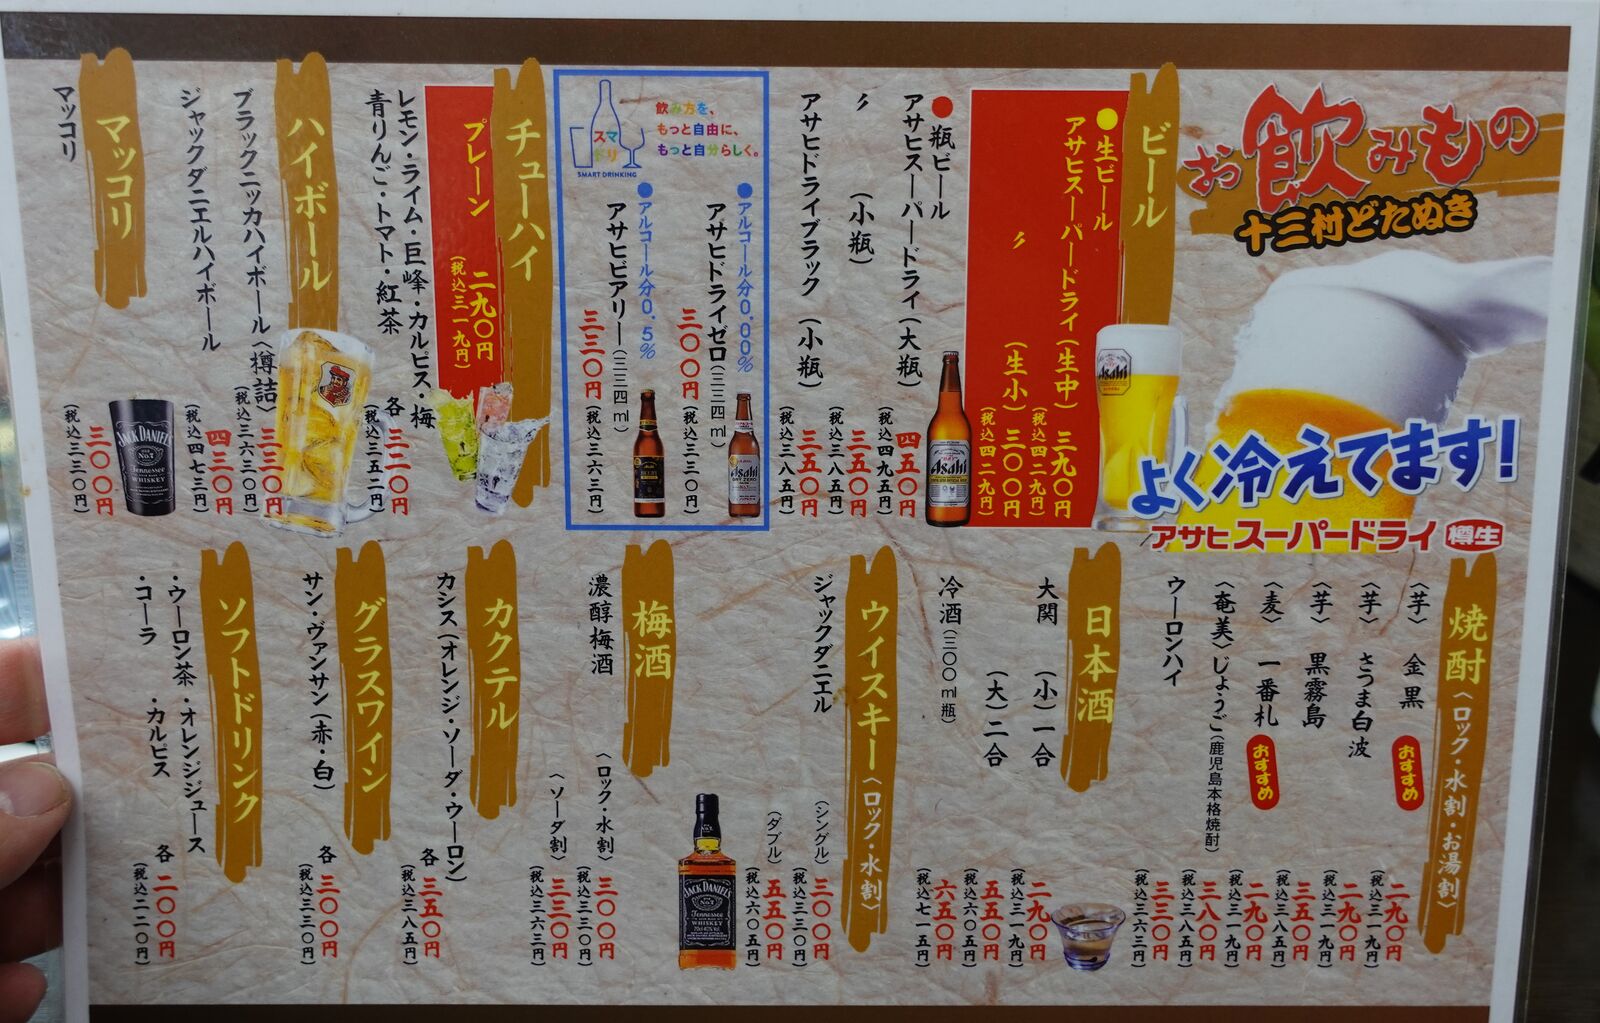 お飲みもの
十三村どたぬき
よく冷えてます!
アサヒスーパードライ 樽生
ビール
●生ビール
アサヒスーパードライ(生中) 三九〇円
(税込四二九円)
〃 (生小) 三〇〇円
(税込四二九円)
●瓶ビール
アサヒスーパードライ(大瓶) 四五〇円
(税込四九五円)
〃 (小瓶) 三五〇円
(税込三八五円)
アサヒドライブラック (小瓶) 三五〇円
(税込三八五円)
スマドリ
SMART DRINKING
飲み方を、
もっと自由に、
もっと自分らしく。
●アルコール分0.00%
アサヒドライゼロ(三三四ml)
三〇〇円
(税込三三〇円)
●アルコール分0.5%
アサヒビアリー(三三四ml)
三三〇円
(税込三六三円)
チューハイ
プレーン 二九〇円
(税込三一九円)
レモン・ライム・巨峰・カルピス・梅
青りんご・トマト・紅茶
各 三二〇円
(税込三五二円)
ハイボール
ブラックニッカハイボール〈樽詰〉 三三〇円
(税込三六三〇円)
ジャックダニエルハイボール 四三〇円
(税込四七三円)
マッコリ
マッコリ 三〇〇円
(税込三三〇円)
焼酎〈ロック・水割・お湯割〉
〈芋〉 金黒 おすすめ 二九〇円
(税込三一九円)
〈芋〉 さつま白波 二九〇円
(税込三一九円)
〈芋〉 黒霧島 三五〇円
(税込三一九円)
〈麦〉 一番札 おすすめ 二九〇円
(税込三一九円)
〈奄美〉じょうご(鹿児島本格焼酎) 三八〇円
(税込三八五円)
ウーロンハイ 三三〇円
(税込三六三円)
日本酒
大関 (小)一合 二九〇円
(税込三一九円)
(大)二合 五五〇円
(税込六〇五円)
冷酒(三〇〇ml瓶) 六五〇円
(税込七一五円)
ウイスキー〈ロック・水割〉
ジャックダニエル (シングル) 三〇〇円
(税込三三〇円)
(ダブル) 五五〇円
(税込六〇五円)
梅酒
濃醇梅酒 〈ロック・水割〉 三〇〇円
(税込三三〇円)
〈ソーダ割〉 三三〇円
(税込三六三円)
カクテル
カシス(オレンジ・ソーダ・ウーロン)
各 三五〇円
(税込三八五円)
グラスワイン
サン・ヴァンサン(赤・白) 各 三〇〇円
(税込三三〇円)
ソフトドリンク
・ウーロン茶 ・オレンジジュース
・コーラ ・カルピス 各 二〇〇円
(税込二二〇円)
Asahi
Asahi
JACK DANIEL'S
Tennessee
WHISKEY
JACK DANIEL'S
Tennessee
WHISKEY